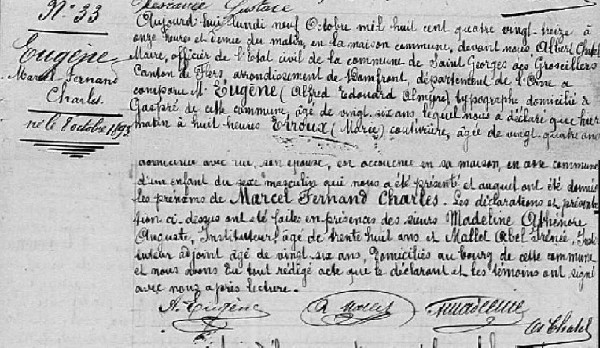 N° 33
Eugène
Marcel Fernand
Charles
né le 8 octobre 1893
Aujourd'hui lundi neuf Octobre mil huit cent quatre vingt treize à
onze heures et demie du matin, en la maison commune, devant nous Albert
Maire, officier de l'Etat civil de la commune de Saint Georges des Groseillers
Canton de Flers, arrondissement de Domfront, département de l'Orne a
comparu Mr Eugène (Alfred Edouard typographe domicilié à
de cette commune, âgé de vingt-six ans lequel nous a déclaré que hier
matin à huit heures (Marie) couturière, âgée de vingt quatre ans
domiciliée avec lui, son épouse, est accouchée en sa maison, en cette commune
d'un enfant du sexe masculin qui nous a été présenté et auquel ont été donnés
les prénoms de Marcel Fernand Charles. Les déclarations et présenta-
tion ci-dessus ont été faites en présences des sieurs Madeline
Auguste, Instituteur, âgé de trente huit ans et Mallet Abel Irénée, Insti-
tuteur adjoint âgé de vingt-six ans, domiciliés au bourg de cette commune
et nous avons du tout rédigé acte que le déclarant et les témoins ont signé
avec nous après lecture.
A. Eugène A. Mallet Madeline A Chatel